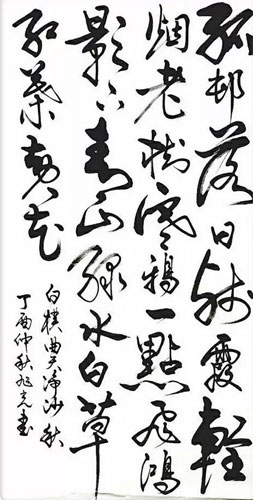 孤邨落日残霞輕
烟老樹寒鴉一點飛鴻
影下青山綠水白草
紅葉黄花
白樸曲天淨沙秋
丁酉仲秋書